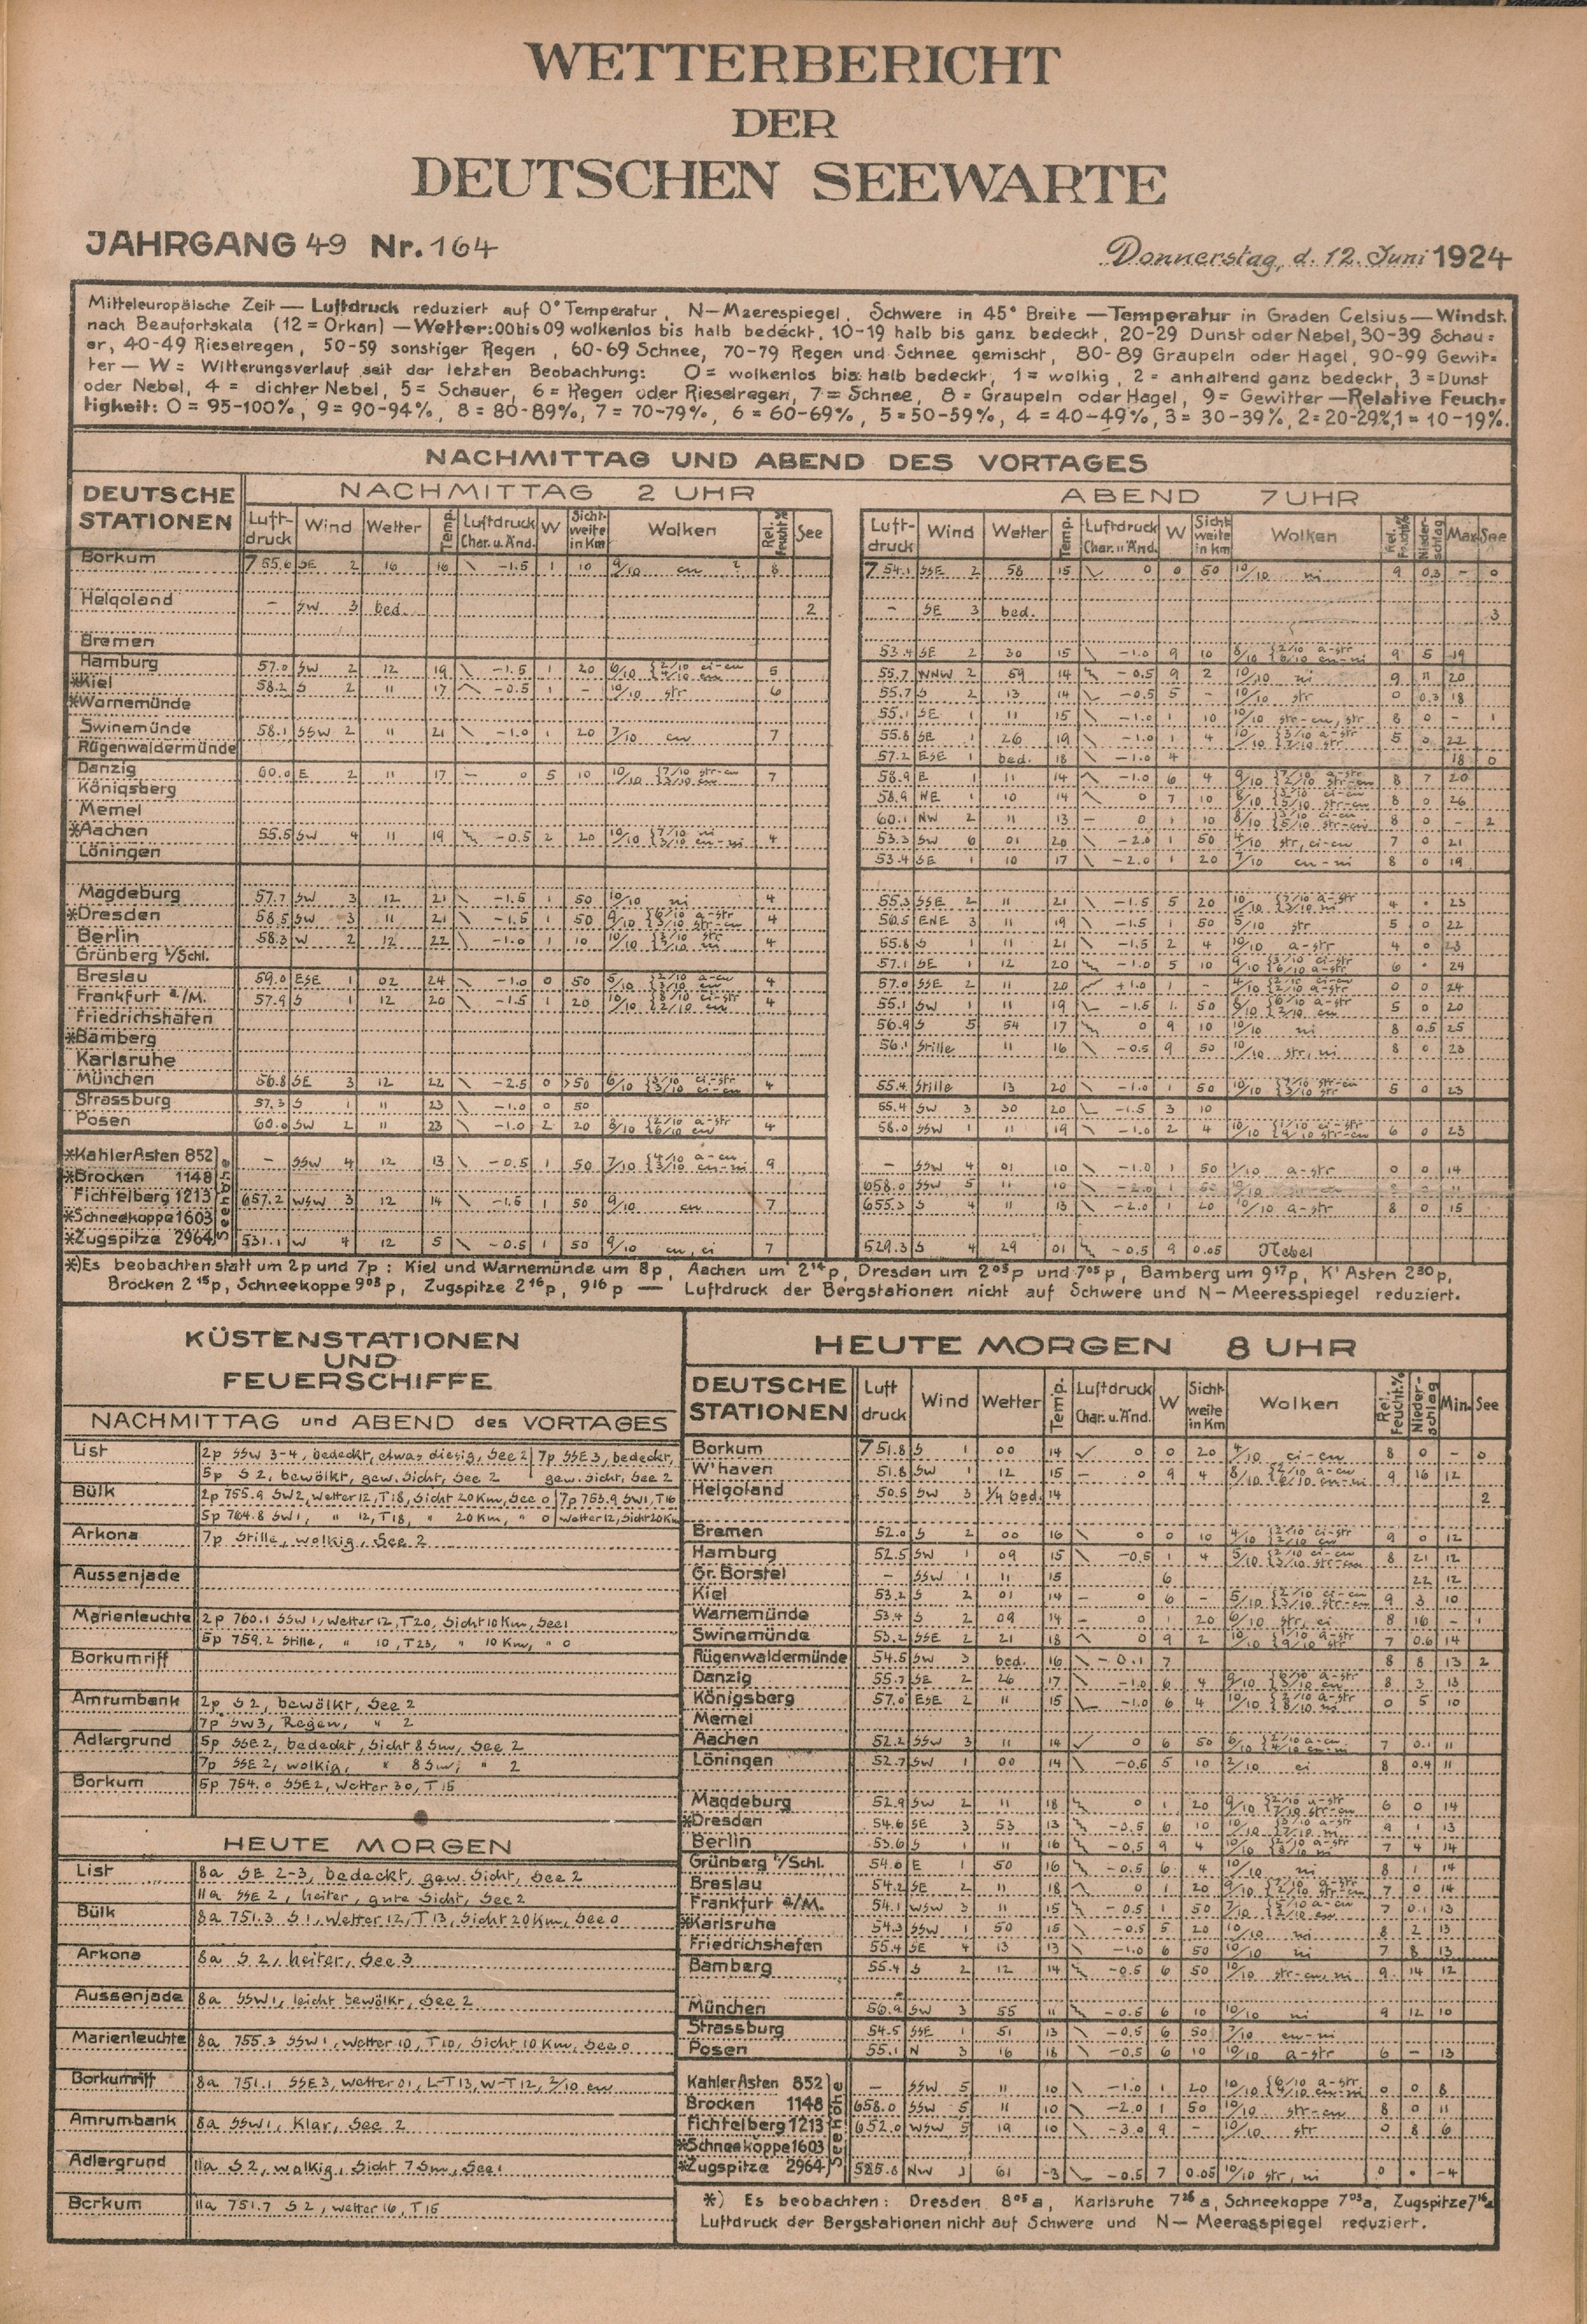 WETTERBERICHT
DER
DEUTSCHEN SEEWARTE
JAHRGANG 49 Nr. 164 Donnerstag, d. 12. Juni 1924
Mitteleuropäische Zeit — Luftdruck reduziert auf 0° Temperatur, N—Meerespiegel, Schwere in 45° Breite — Temperatur in Graden Celsius — Windst.
nach Beaufortskala (12 = Orkan) — Wetter: 00 bis 09 wolkenlos bis halb bedeckt, 10-19 halb bis ganz bedeckt, 20-29 Dunst oder Nebel, 30-39 Schau=
er, 40-49 Rieselregen, 50-59 sonstiger Regen, 60-69 Schnee, 70-79 Regen und Schnee gemischt, 80-89 Graupeln oder Hagel, 90-99 Gewit=
ter — W = Witterungsverlauf seit der letzten Beobachtung: 0 = wolkenlos bis halb bedeckt, 1 = wolkig, 2 = anhaltend ganz bedeckt, 3 = Dunst
oder Nebel, 4 = dichter Nebel, 5 = Schauer, 6 = Regen oder Rieselregen, 7 = Schnee, 8 = Graupeln oder Hagel, 9 = Gewitter — Relative Feuch=
tigkeit: 0 = 95-100%, 9 = 90-94%, 8 = 80-89%, 7 = 70-79%, 6 = 60-69%, 5 = 50-59%, 4 = 40-49%, 3 = 30-39%, 2 = 20-29%, 1 = 10-19%.
NACHMITTAG UND ABEND DES VORTAGES
DEUTSCHE STATIONEN
NACHMITTAG 2 UHR ABEND 7 UHR
Luft-druck Wind Wetter Temp. Luftdruck Char. u. Änd. W Sicht-weite in Km Wolken Rel. Feucht.% See
Luft-druck Wind Wetter Temp. Luftdruck Char. u. Änd. W Sicht-weite in km Wolken Rel. Feucht.% Nieder-schlag Max See
Borkum 755.6 SE 2 16 16 -1.5 1 10 9/10 cu 8 754.1 SSE 2 58 15 0 50 10/10 ni 9 0.3 - 0
Helgoland - SW 3 bed. 2 - SE 3 bed. 3
Bremen 53.4 SE 2 30 15 -1.0 9 10 8/10 9 5 19
Hamburg 57.0 SW 2 12 19 -1.5 1 20 6/10 5 55.7 WNW 2 59 14 -0.5 9 2 10/10 ni 9 11 20
*Kiel 58.2 S 2 11 17 -0.5 1 - 10/10 str 6 55.7 S 2 13 14 -0.5 5 - 10/10 str 0 0.3 18
*Warnemünde 55.1 SE 1 11 15 -1.0 1 10 10/10 str-cu, str 8 0 - 1
Swinemünde 58.1 SSW 2 11 21 -1.0 1 20 7/10 cu 7 55.8 SE 1 26 19 -1.0 1 4 10/10 5 0 22
Rügenwaldermünde 57.2 ESE 1 bed. 18 -1.0 4 18 0
Danzig 60.0 E 2 11 17 — 0 5 10 10/10 7 58.9 E 1 11 14 -1.0 6 4 9/10 8 7 20
Königsberg 58.9 NE 1 10 14 0 7 10 8 0 26
Memel 60.1 NW 2 11 13 — 0 1 10 8/10 8 0 - 2
*Aachen 55.5 SW 4 11 19 -0.5 2 20 10/10 4 53.3 SW 6 01 20 -2.0 1 50 4/10 str, ci-cu 7 0 21
Löningen 53.4 SE 1 10 17 -2.0 1 20 7/10 cu-ni 8 0 19
Magdeburg 57.7 SW 3 12 21 -1.5 1 50 10/10 ni 4 55.3 SSE 2 11 21 -1.5 5 20 10/10 4 • 23
*Dresden 58.5 SW 3 11 21 -1.5 1 50 9/10 4 56.5 ENE 3 11 19 -1.5 1 50 5/10 str 5 0 22
Berlin 58.3 W 2 12 22 -1.0 1 10 10/10 4 55.8 S 1 11 21 -1.5 2 4 10/10 a-str 4 0 23
Grünberg i/Schl. 57.1 SE 1 12 20 -1.0 5 10 9/10 6 • 24
Breslau 59.0 ESE 1 02 24 -1.0 0 50 5/10 4 57.0 SSE 2 11 20 +1.0 1 - 4/10 0 0 24
Frankfurt a./M. 57.9 S 1 12 20 -1.5 1 20 10/10 4 55.1 SW 1 11 19 -1.5 1 50 8/10 5 0 20
Friedrichshafen 56.9 S 5 54 17 0 9 10 10/10 ni 8 0.5 25
*Bamberg 56.1 Stille 11 16 -0.5 9 50 10/10 str, ni 8 0 23
Karlsruhe
München 56.8 SE 3 12 22 -2.5 0 >50 6/10 4 55.4 Stille 13 20 -1.0 1 50 10/10 5 0 23
Strassburg 57.3 S 1 11 23 -1.0 0 50 55.4 SW 3 30 20 -1.5 3 10
Posen 60.0 SW 2 11 23 -1.0 2 20 8/10 4 58.0 SSW 1 11 19 -1.0 2 4 10/10 6 0 23
Seehöhe
*Kahler Asten 852 - SSW 4 12 13 -0.5 1 50 7/10 9 - SSW 4 01 10 -1.0 1 50 1/10 a-str 0 0 14
*Brocken 1148 658.0 SSW 5 11 10
Fichtelberg 1213 657.2 WSW 3 12 14 -1.5 1 50 9/10 cu 7 655.3 S 4 11 13 -2.0 1 20 10/10 a-str 8 0 15
*Schneekoppe 1603
*Zugspitze 2964 531.1 W 4 12 5 -0.5 1 50 9/10 cu, ci 7 529.3 S 4 29 01 -0.5 9 0.05 Nebel
*) Es beobachten statt um 2p und 7p: Kiel und Warnemünde um 8p, Aachen um 2¹⁴p, Dresden um 2⁰⁵p und 7⁰⁵p, Bamberg um 9¹⁷p, K' Asten 2³⁰p,
Brocken 2¹⁵p, Schneekoppe 9⁰³p, Zugspitze 2¹⁶p, 9¹⁶p — Luftdruck der Bergstationen nicht auf Schwere und N—Meeresspiegel reduziert.
KÜSTENSTATIONEN
UND
FEUERSCHIFFE
NACHMITTAG und ABEND des VORTAGES
List 2p SSW 3-4, bedeckt, etwas diesig, See 2 7p SSE 3, bedeckt,
5p S 2, bewölkt, gew. Sicht, See 2 gew. Sicht, See 2
Bülk 2p 755.9 SW2, Wetter 12, T18, Sicht 20 Km, See 0 7p 753.9 SW1, T16
5p 764.8 SW1, " 12, T18, " 20 Km, " 0 Wetter 12, Sicht 20 Km
Arkona 7p Stille, wolkig, See 2
Aussenjade
Marienleuchte 2p 760.1 SSW 1, Wetter 12, T20, Sicht 10 Km, See 1
5p 759.2 Stille, " 10, T23, " 10 Km, " 0
Borkumriff
Amrumbank 2p S 2, bewölkt, See 2
7p SW3, Regen, " 2
Adlergrund 5p SSE 2, bedeckt, Sicht 8 Sm, See 2
7p SSE 2, wolkig, " 8 Sm, " 2
Borkum 5p 754.0 SSE 2, Wetter 30, T 15
HEUTE MORGEN
List 8a SE 2-3, bedeckt, gew. Sicht, See 2
11a SSE 2, heiter, gute Sicht, See 2
Bülk 8a 751.3 S 1, Wetter 12, T 13, Sicht 20 Km, See 0
Arkona 8a S 2, heiter, See 3
Aussenjade 8a SSW 1, leicht bewölkt, See 2
Marienleuchte 8a 755.3 SSW 1, Wetter 10, T 10, Sicht 10 Km, See 0
Borkumriff 8a 751.1 SSE 3, Wetter 01, L-T 13, W-T 12, 2/10 cu
Amrumbank 8a SSW 1, Klar, See 2
Adlergrund 11a S 2, wolkig, Sicht 7 Sm, See 1
Borkum 11a 751.7 S 2, Wetter 16, T 15
HEUTE MORGEN 8 UHR
DEUTSCHE STATIONEN Luft druck Wind Wetter Temp. Luftdruck Char. u. Änd. W Sicht-weite in Km Wolken Rel. Feucht.% Nieder-schlag Min. See
Borkum 751.8 S 1 00 14 0 0 20 4/10 ci-cu 8 0 - 0
W'haven 51.8 SW 1 12 15 — 0 9 4 8/10 9 16 12
Helgoland 50.5 SW 3 1/4 bed. 14 2
Bremen 52.0 S 2 00 16 0 0 10 4/10 9 0 12
Hamburg 52.5 SW 1 09 15 -0.5 1 4 5/10 8 21 12
Gr. Borstel - SSW 1 11 15 6 22 12
Kiel 53.2 S 2 01 14 — 0 6 - 5/10 9 3 10
Warnemünde 53.4 S 2 09 14 — 0 1 20 6/10 str, ci 8 16 - 1
Swinemünde 53.2 SSE 2 21 18 0 9 2 10/10 7 0.6 14
Rügenwaldermünde 54.5 SW 3 bed. 16 -0.1 7 8 8 13 2
Danzig 55.7 SE 2 26 17 -1.0 6 4 9/10 8 3 13
Königsberg 57.0 ESE 2 11 15 -1.0 6 4 10/10 0 5 10
Memel
Aachen 52.2 SSW 3 11 14 0 6 50 6/10 7 0.1 11
Löningen 52.7 SW 1 00 14 -0.5 5 10 2/10 ci 8 0.4 11
Magdeburg 52.9 SW 2 11 18 0 1 20 9/10 6 0 14
*Dresden 54.6 SE 3 53 13 -0.5 6 10 10/10 9 1 13
Berlin 53.6 S 1 11 16 -0.5 9 4 10/10 7 4 14
Grünberg i/Schl. 54.6 E 1 50 16 -0.5 6 4 10/10 ni 8 1 14
Breslau 54.2 SE 2 11 18 0 1 20 9/10 7 0 14
Frankfurt a/M. 54.1 WSW 3 11 15 -0.5 1 50 7/10 7 0.1 13
*Karlsruhe 54.3 SSW 1 50 15 -0.5 5 20 10/10 ni 8 2 13
Friedrichshafen 55.4 SE 4 13 13 -1.0 6 50 10/10 ni 7 8 13
Bamberg 55.4 S 2 12 14 -0.5 6 50 10/10 str-cu, ni 9 14 12
München 56.9 SW 3 55 11 -0.5 6 10 10/10 ni 9 12 10
Strassburg 54.5 SSE 1 51 13 -0.5 6 50 7/10 cu-ni
Posen 55.1 N 3 16 18 -0.5 6 10 10/10 a-str 6 - 13
Seehöhe
Kahler Asten 852 - SSW 5 11 10 -1.0 1 20 10/10 0 0 8
Brocken 1148 658.0 SSW 5 11 10 -2.0 1 50 10/10 str-cu 8 0 11
Fichtelberg 1213 652.0 WSW 5 19 10 -3.0 9 - 10/10 str 0 8 6
*Schneekoppe 1603
*Zugspitze 2964 525.8 NW 3 61 -3 -0.5 7 0.05 10/10 str, ni 0 • -4
*) Es beobachten: Dresden 8⁰⁵a, Karlsruhe 7²⁶a, Schneekoppe 7⁰³a, Zugspitze 7¹⁶a
Luftdruck der Bergstationen nicht auf Schwere und N—Meeresspiegel reduziert.